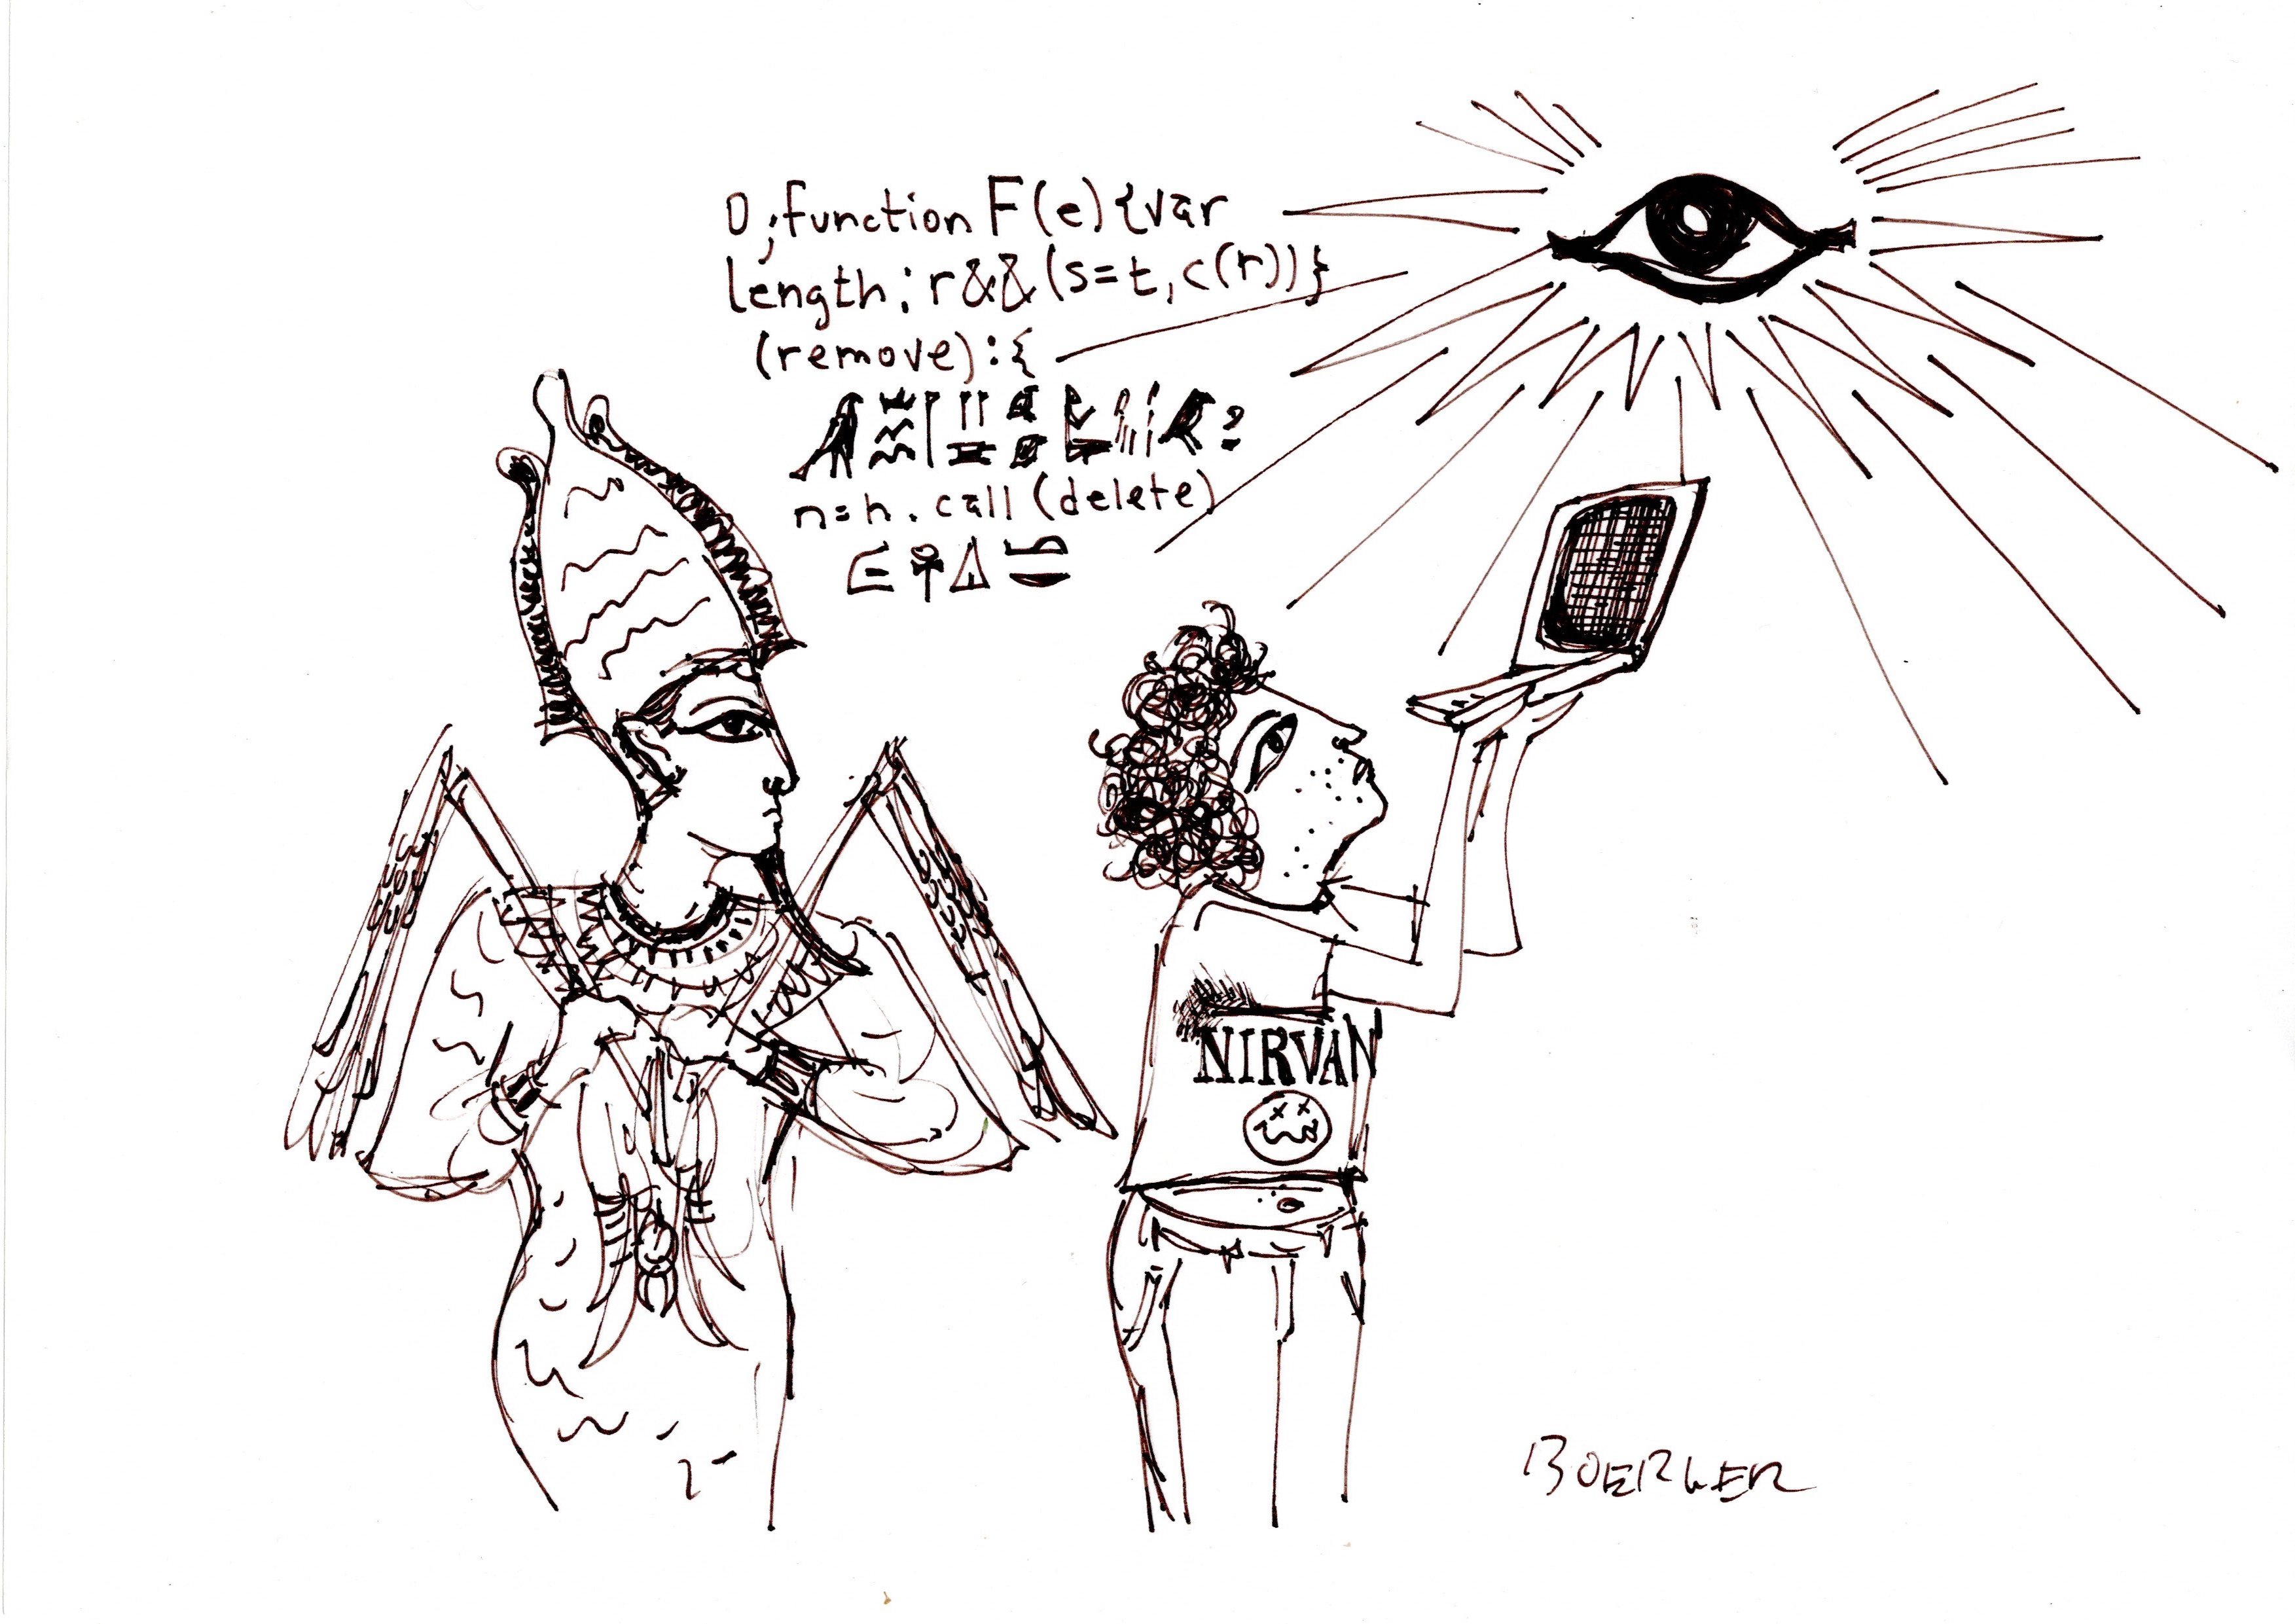 0;function F(e){var
length;r&&(s=t,c(r))}
(remove):{
n=h.call(delete)
NIRVAN
BOERLER